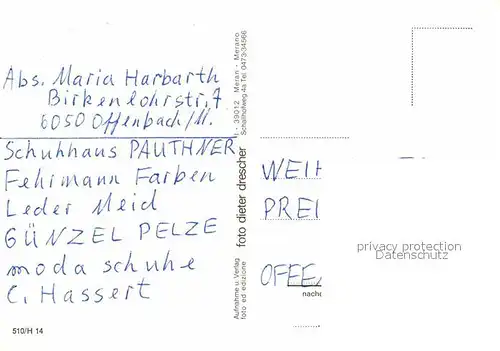 Abs. Maria Harbarth
Birkenlohrstr. 7
6050 Offenbach/M.
Schuhhaus PAUTHNER
Fehrmann Farben
Leder Meid
GÜNZEL PELZE
moda schuhe
C. Hassert
510/H 14
Aufnahme u. Verlag
foto ed edizione
foto dieter drescher
I - 39012 Meran - Merano
Schallhofweg 4a Tel. 0473/34566
WEIH
PREI
OFFE
nache
privacy protection
Datenschutz